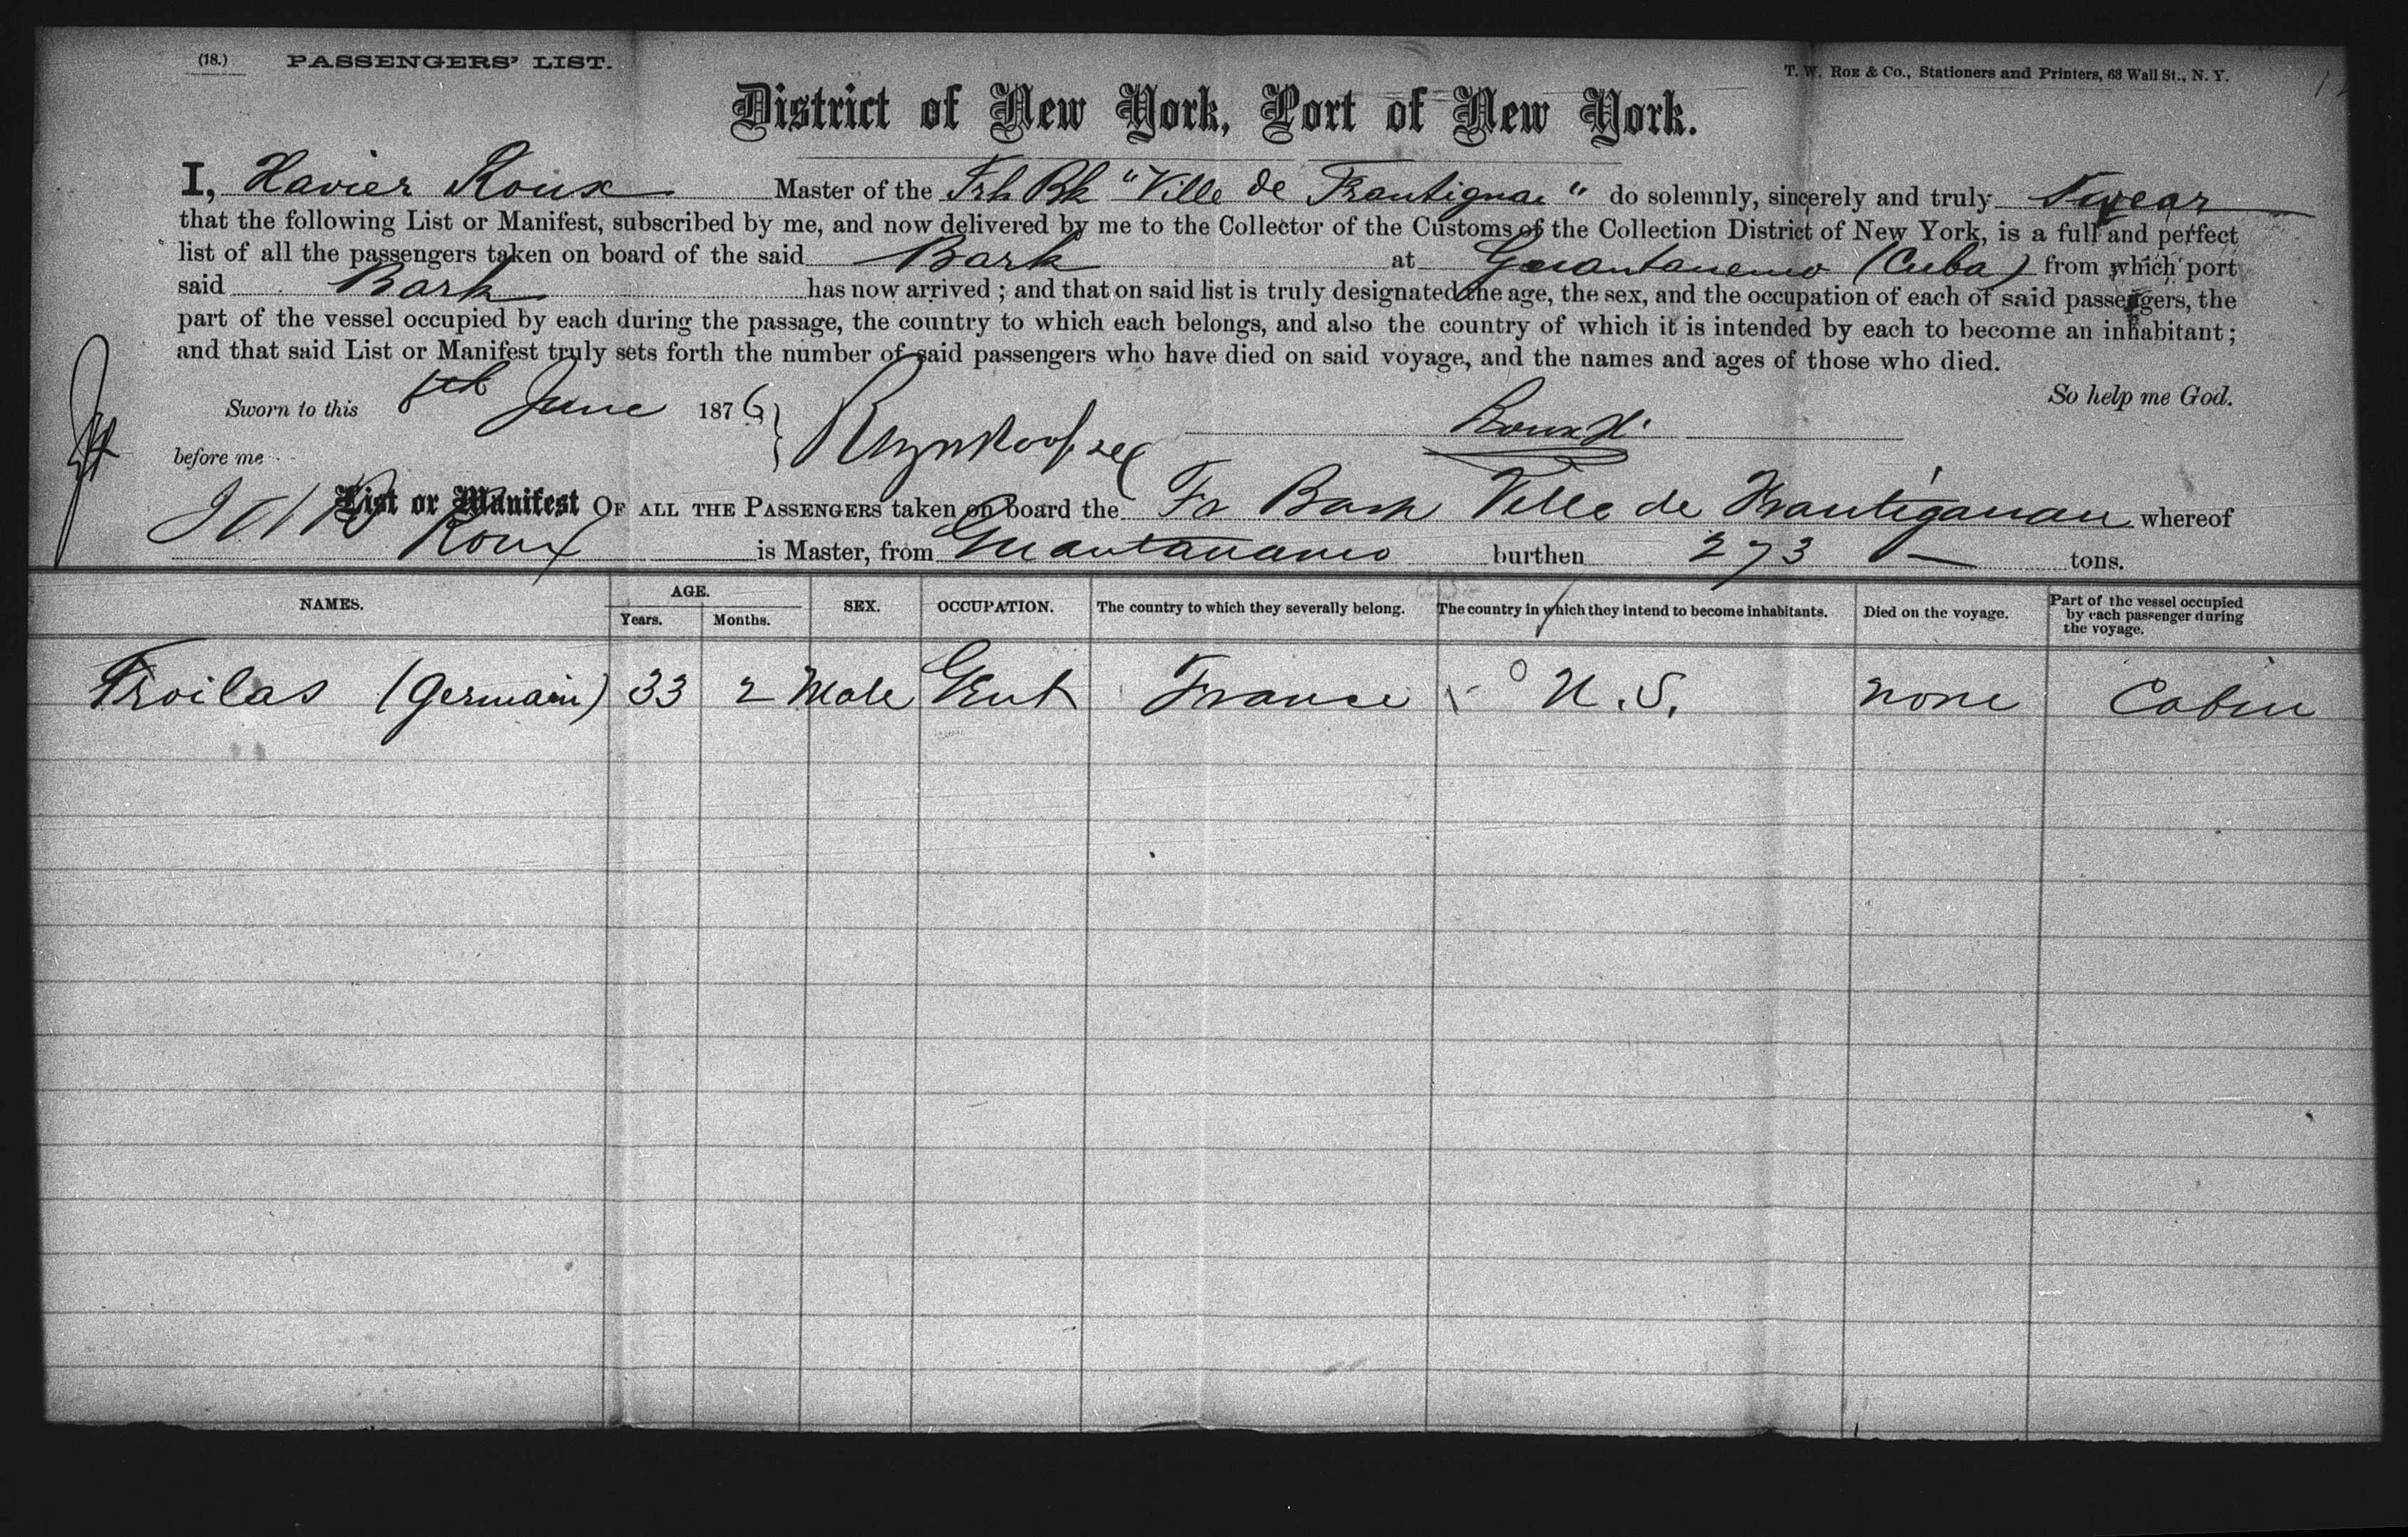 (18.) PASSENGERS' LIST.
T. W. ROE & CO., Stationers and Printers, 63 Wall St., N. Y.
District of New York, Port of New York.
I, Xavier Roux Master of the Frh Bk "Ville de Frontignac" do solemnly, sincerely and truly Swear
that the following List or Manifest, subscribed by me, and now delivered by me to the Collector of the Customs of the Collection District of New York, is a full and perfect
list of all the passengers taken on board of the said Bark at Guantanemo (Cuba) from which port
said Bark has now arrived; and that on said list is truly designated the age, the sex, and the occupation of each of said passengers, the
part of the vessel occupied by each during the passage, the country to which each belongs, and also the country of which it is intended by each to become an inhabitant;
and that said List or Manifest truly sets forth the number of said passengers who have died on said voyage, and the names and ages of those who died.
So help me God.
Sworn to this June 1876 }
Roux X.
before me
List or Manifest OF ALL THE PASSENGERS taken on board the Fr Bark Ville de whereof
Roux is Master, from Guantanamo burthen 273 — tons.
NAMES. AGE. Years. Months. SEX. OCCUPATION. The country to which they severally belong. The country in which they intend to become inhabitants. Died on the voyage. Part of the vessel occupied by each passenger during the voyage.
Troilas (Germain) 33 2 Male Gent France U.S. none Cabin